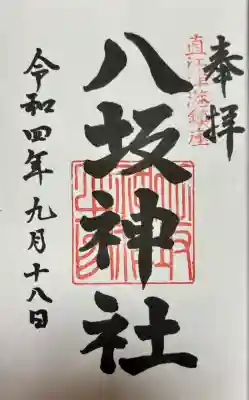 奉拝
直江津総鎮座
八坂神社
令和四年九月十八日